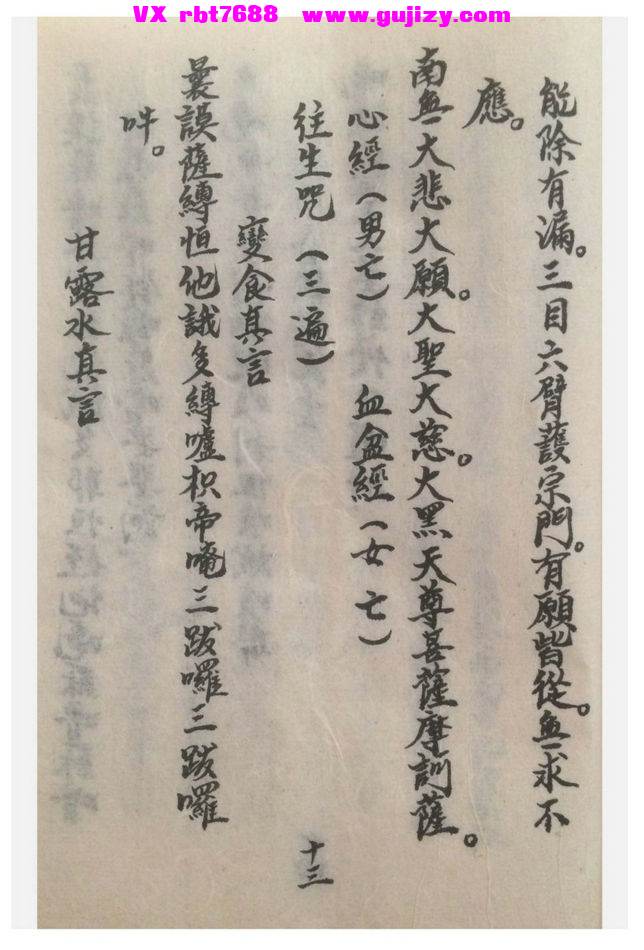 VX rbt7688 www.gujizy.com
能除有漏。三目六臂護宗門。有願皆從。無求不
應。
南無大悲大願。大聖大慈。大黑天尊菩薩摩訶薩。
心經(男亡) 血盆經(女亡)
往生咒(三遍)
變食真言
曩謨薩縛怛他誐多縛嚧枳帝唵三跋囉三跋囉
吽。
甘露水真言
十三